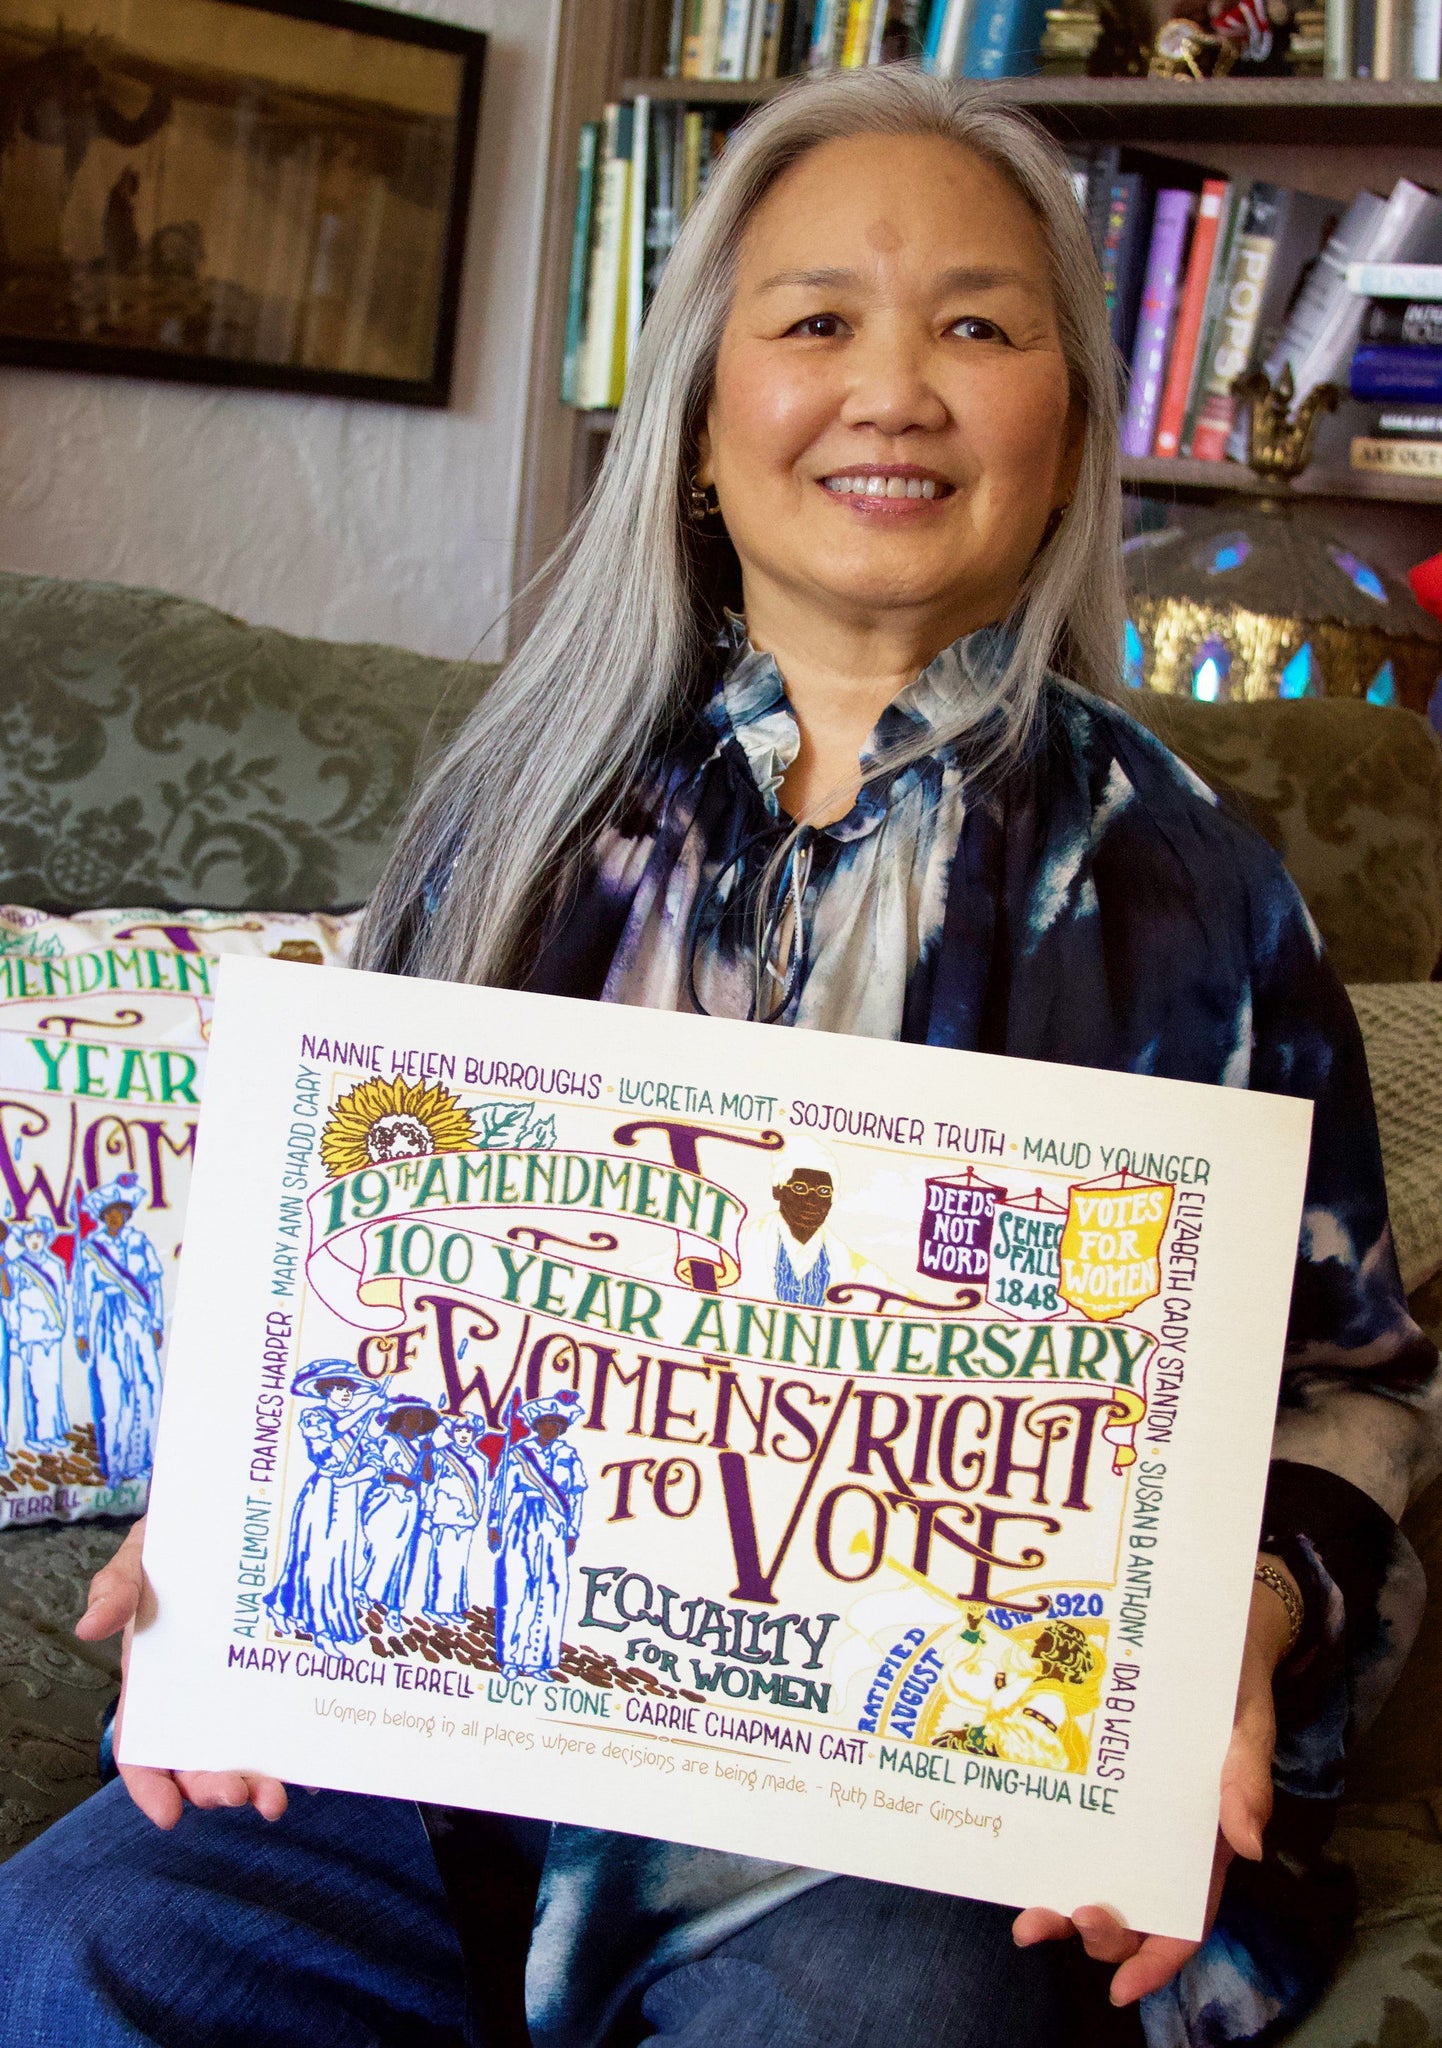 POPS
ART OUT
MENDMEN
YEAR
WOM
TERRELL · LUCY
NANNIE HELEN BURROUGHS · LUCRETIA MOTT · SOJOURNER TRUTH · MAUD YOUNGER
ELIZABETH CADY STANTON · SUSAN B ANTHONY · IDA B WELLS
ALVA BELMONT · FRANCES HARPER · MARY ANN SHADD CARY
19TH AMENDMENT
100 YEAR ANNIVERSARY
OF WOMEN'S RIGHT
TO VOTE
DEEDS
NOT
WORD
SENEC
FALL
1848
VOTES
FOR
WOMEN
EQUALITY
FOR WOMEN
RATIFIED
AUGUST
18TH 1920
MARY CHURCH TERRELL · LUCY STONE · CARRIE CHAPMAN CATT · MABEL PING-HUA LEE
Women belong in all places where decisions are being made. - Ruth Bader Ginsburg